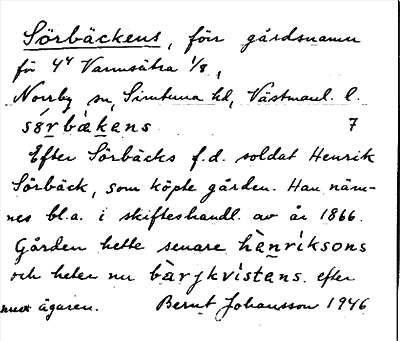 Sörbäckens, förr gårdsnamn
för 4ᵃ Vannsätra 1/8,
Norrby sn, Simtuna hd, Västmanl. l.
sø̀rbä̀kens 7
Efter Sörbäcks f.d. soldat Henrik
Sörbäck, som köpte gården. Han näm-
nes bl.a. i skifteshandl. av år 1866.
Gården hette senare hènriksons
och heter nu bàrjkvistens efter
nuv ägaren. Bernt Johansson 1946